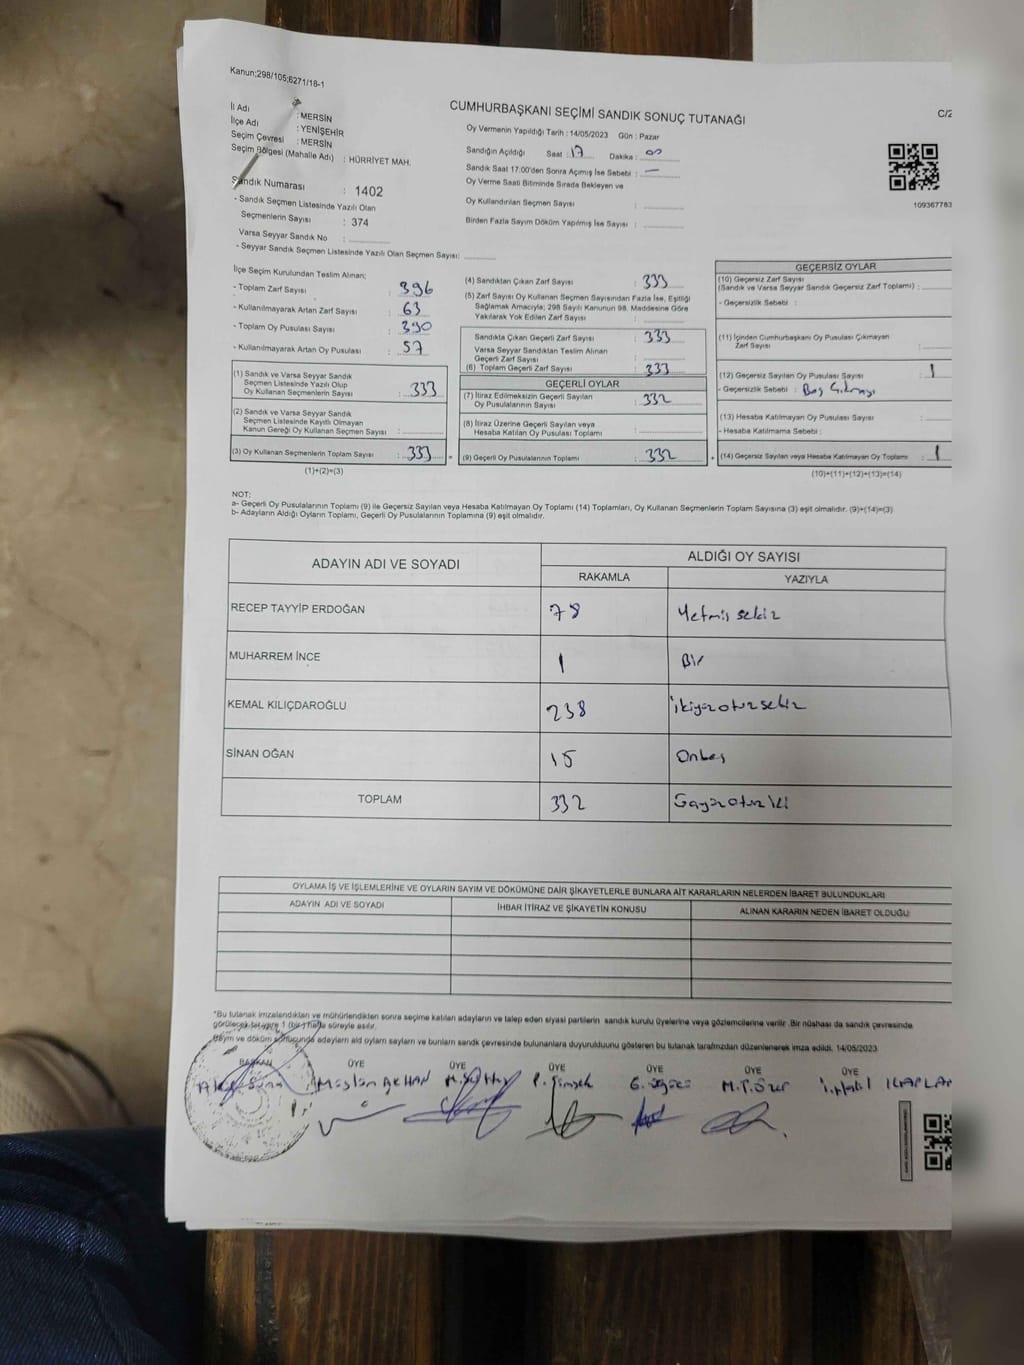 Kanun;298/105;6271/18-1
CUMHURBAŞKANI SEÇİMİ SANDIK SONUÇ TUTANAĞI
C/2
İl Adı : MERSİN
İlçe Adı : YENİŞEHİR
Seçim Çevresi : MERSİN
Seçim Bölgesi (Mahalle Adı) : HÜRRİYET MAH.
Sandık Numarası : 1402
- Sandık Seçmen Listesinde Yazılı Olan
Seçmenlerin Sayısı : 374
Varsa Seyyar Sandık No :
- Seyyar Sandık Seçmen Listesinde Yazılı Olan Seçmen Sayısı:
Oy Vermenin Yapıldığı Tarih : 14/05/2023 Gün : Pazar
Sandığın Açıldığı Saat : 17 Dakika : 00
Sandık Saat 17:00'den Sonra Açımış İse Sebebi : —
Oy Verme Saati Bitiminde Sırada Bekleyen ve
Oy Kullandırılan Seçmen Sayısı :
Birden Fazla Sayım Döküm Yapılmış İse Sayısı :
109367783
İlçe Seçim Kurulundan Teslim Alınan;
- Toplam Zarf Sayısı : 396
- Kullanılmayarak Artan Zarf Sayısı : 63
- Toplam Oy Pusulası Sayısı : 390
- Kullanılmayarak Artan Oy Pusulası : 57
(1) Sandık ve Varsa Seyyar Sandık
Seçmen Listesinde Yazılı Olup
Oy Kullanan Seçmenlerin Sayısı : 333
(2) Sandık ve Varsa Seyyar Sandık
Seçmen Listesinde Kayıtlı Olmayan
Kanun Gereği Oy Kullanan Seçmen Sayısı :
(3) Oy Kullanan Seçmenlerin Toplam Sayısı : 333 =
(1)+(2)=(3)
(4) Sandıktan Çıkan Zarf Sayısı : 333
(5) Zarf Sayısı Oy Kullanan Seçmen Sayısından Fazla İse, Eşitliği
Sağlamak Amacıyla; 298 Sayılı Kanunun 98. Maddesine Göre
Yakılarak Yok Edilen Zarf Sayısı :
Sandıkta Çıkan Geçerli Zarf Sayısı : 333
Varsa Seyyar Sandıktan Teslim Alınan
Geçerli Zarf Sayısı :
(6) Toplam Geçerli Zarf Sayısı : 333
GEÇERLİ OYLAR
(7) İtiraz Edilmeksizin Geçerli Sayılan
Oy Pusulalarının Sayısı : 332
(8) İtiraz Üzerine Geçerli Sayılan veya
Hesaba Katılan Oy Pusulası Toplamı :
(9) Geçerli Oy Pusulalarının Toplamı : 332 +
GEÇERSİZ OYLAR
(10) Geçersiz Zarf Sayısı
(Sandık ve Varsa Seyyar Sandık Geçersiz Zarf Toplamı) :
- Geçersizlik Sebebi :
(11) İçinden Cumhurbaşkanı Oy Pusulası Çıkmayan
Zarf Sayısı :
(12) Geçersiz Sayılan Oy Pusulası Sayısı : 1
- Geçersizlik Sebebi : Boş Çıkması
(13) Hesaba Katılmayan Oy Pusulası Sayısı :
- Hesaba Katılmama Sebebi :
(14) Geçersiz Sayılan veya Hesaba Katılmayan Oy Toplamı : 1
(10)+(11)+(12)+(13)=(14)
NOT:
a- Geçerli Oy Pusulalarının Toplamı (9) ile Geçersiz Sayılan veya Hesaba Katılmayan Oy Toplamı (14) Toplamları, Oy Kullanan Seçmenlerin Toplam Sayısına (3) eşit olmalıdır. (9)+(14)=(3)
b- Adayların Aldığı Oyların Toplamı, Geçerli Oy Pusulalarının Toplamına (9) eşit olmalıdır.
ADAYIN ADI VE SOYADI
ALDIĞI OY SAYISI
RAKAMLA YAZIYLA
RECEP TAYYİP ERDOĞAN 78 Yetmiş sekiz
MUHARREM İNCE 1 Bir
KEMAL KILIÇDAROĞLU 238 ikiyüzotuzsekiz
SİNAN OĞAN 15 Onbeş
TOPLAM 332
OYLAMA İŞ VE İŞLEMLERİNE VE OYLARIN SAYIM VE DÖKÜMÜNE DAİR ŞİKAYETLERLE BUNLARA AİT KARARLARIN NELERDEN İBARET BULUNDUKLARI
ADAYIN ADI VE SOYADI İHBAR İTİRAZ VE ŞİKAYETİN KONUSU ALINAN KARARIN NEDEN İBARET OLDUĞU
*Bu tutanak imzalandıktan ve mühürlendikten sonra seçime katılan adayların ve talep eden siyasi partilerin sandık kurulu üyelerine veya gözlemcilerine verilir. Bir nüshası da sandık çevresinde
görülecek bir yere 1 (bir) hafta süreyle asılır.
Sayım ve döküm sonucunda adayların ald oyların sayların ve bunların sandk çevresinde bulunanlara duyurulduunu gösteren bu tutanak tarafmzdan düzenlenerek imza edildi. 14/05/2023
BAŞKAN ÜYE ÜYE ÜYE ÜYE ÜYE ÜYE
AKHAN P. Şimşek M.T.Özer KAPLAN